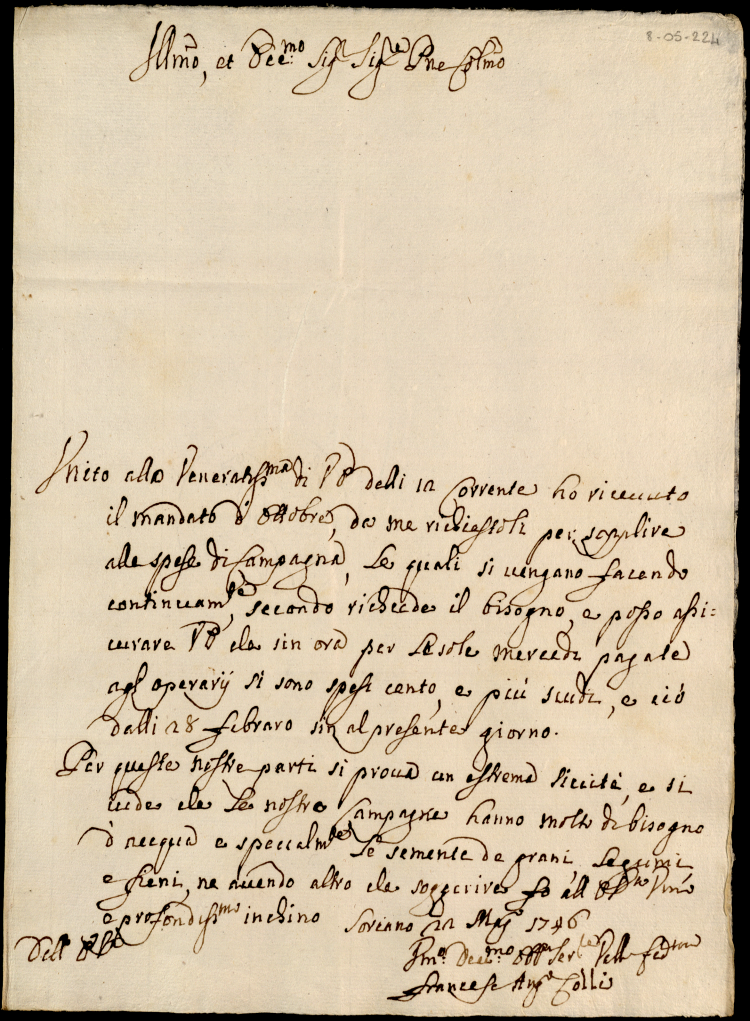 8-05-224
Illmo, et Secc.mo Sig.r Sig.re Pne Colmo
Unito alla Veneratiss.ma di VS delli 12 Corrente ho riceuuto
il mandato d'Ottobre, da me richiestoli per supplire
alle spese di Campagna, le quali si uengano facendo
continuam.te, secondo richiede il bisogno, e posso assi:
curare VS che sin ora per le sole mercedi pagate
agl'operarij si sono spesi cento, e più scudi, e ciò
dalli 28 febraro sin al presente giorno.
Per queste nostre parti si proua un estrema siccità, e si
uede che le nostre Campagne hanno molto di bisogno
d'acqua e specialm.te le semente de grani, legumi
e fieni, ne auendo altro che soggerire fo all
e profondiss.mo inchino Soriano 22 Mag.o 1746
Dell
Ser.re
Francesc Ang.o Colli